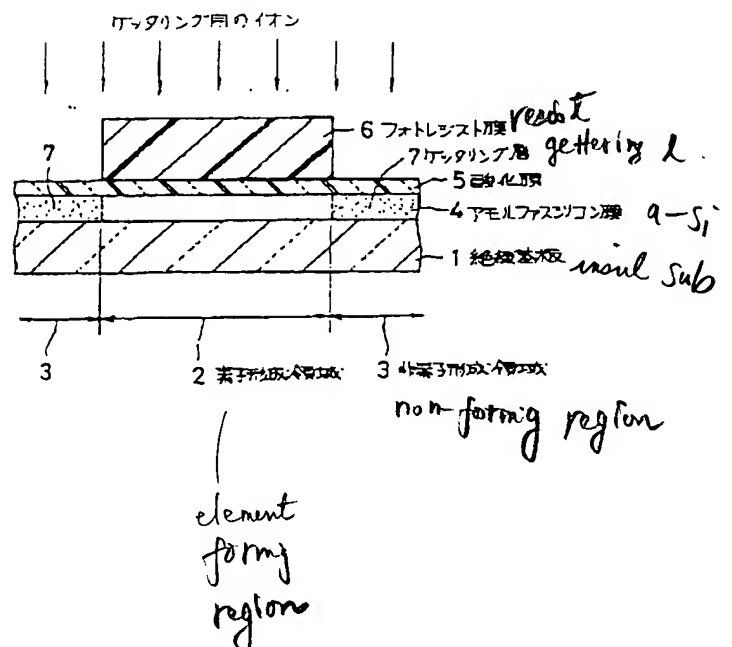 ゲッタリング用のイオン
6 フォトレジスト膜 resist
7 ゲッタリング層 gettering l.
5 酸化膜
4 アモルファスシリコン膜 a-Si
1 絶縁基板 insul sub
7
3
2 素子形成領域
3 非素子形成領域
non-forming region
element
forming
region